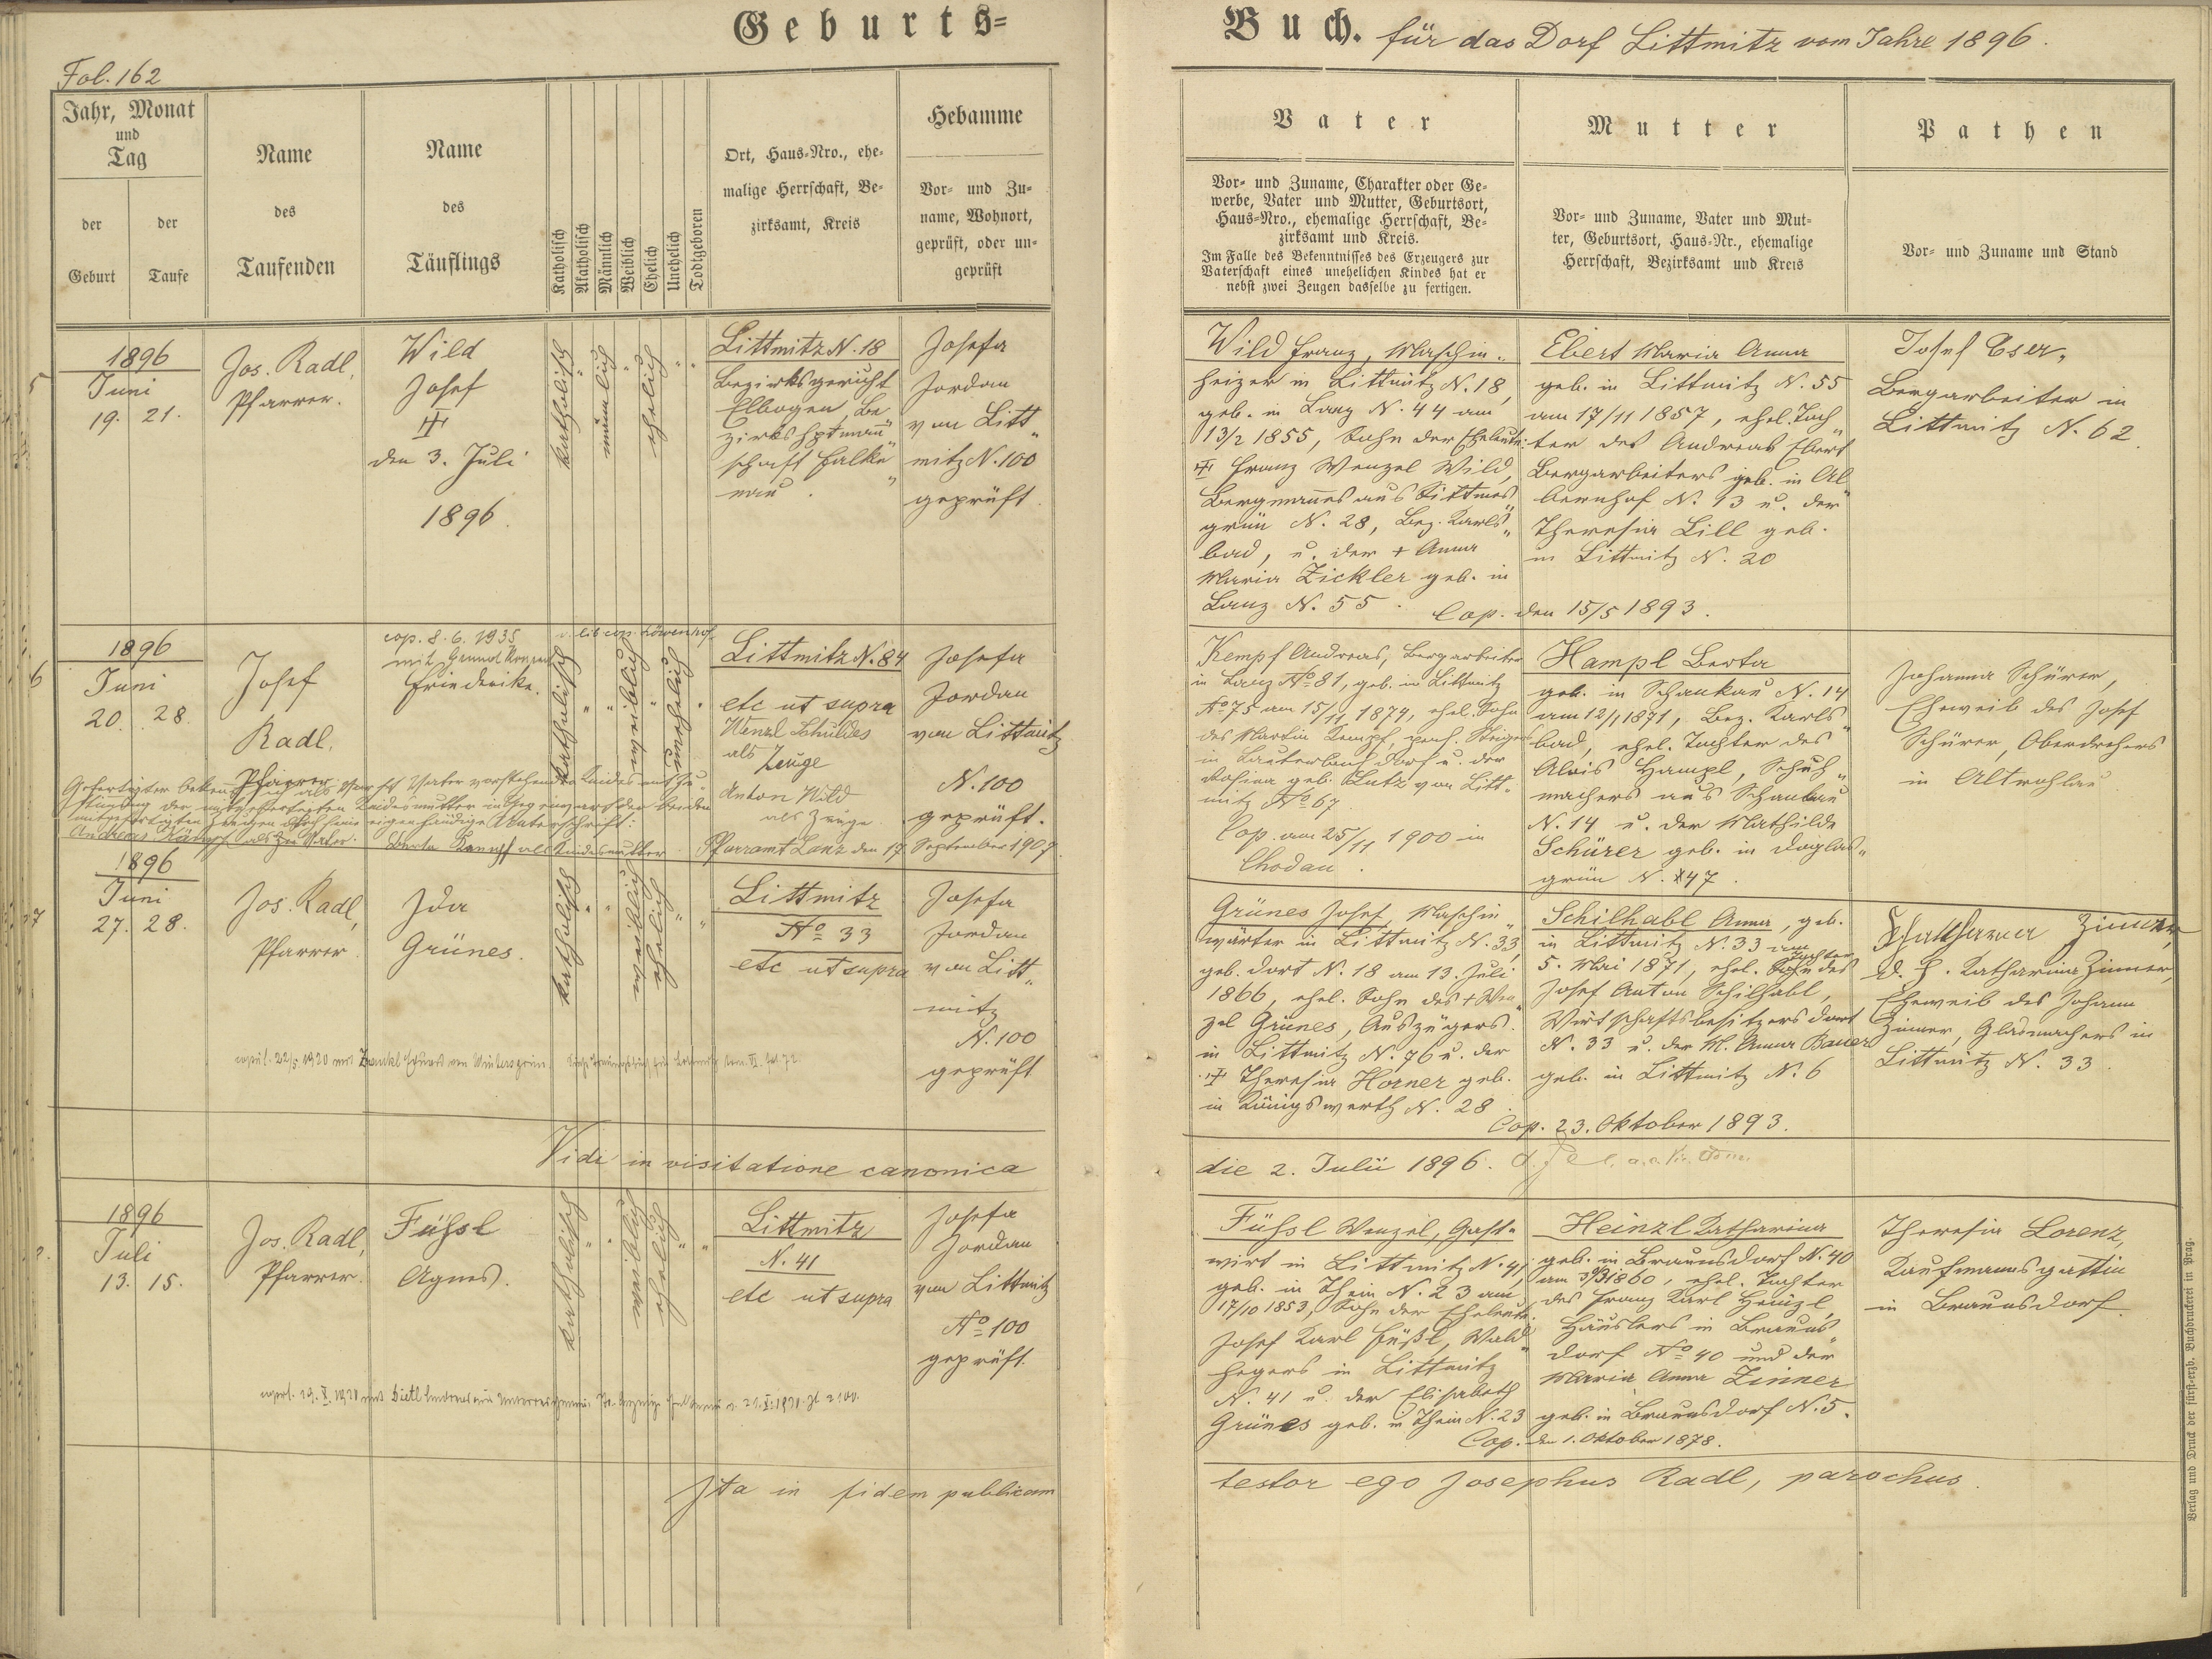 Geburts-
Fol. 162
Jahr, Monat
und
Tag
der
Geburt
der
Taufe
Name
des
Taufenden
Name
des
Täuflings
Katholisch
Akatholisch
Männlich
Weiblich
Ehelich
Unehelich
Todtgeboren
Ort, Haus-Nro., ehe-
malige Herrschaft, Be-
zirksamt, Kreis
Hebamme
Vor- und Zu-
name, Wohnort,
geprüft, oder un-
geprüft
5
1896
Juni
19. 21.
Jos. Radl,
Pfarrer.
Wild
Josef
den 3. Juli
1896.
katholisch
männlich
ehelich
Littmitz N. 18
Bezirksgericht
Elbogen, Be
zirkshptmann
schaft Falke
nau.
Josefa
Jordan
von Litt
mitz N. 100
geprüft.
6
1896
Juni
20. 28.
Josef
Radl,
Pfarrer
cop. 8. 6. 1935
mit
Friederike.
katholisch
weiblich
unehelich
Littmitz N. 84
etc ut supra
Wenzl Schuldes
als
Zeuge
Anton Wild
als Zeuge.
Josefa
Jordan
von Littmitz
N. 100
geprüft.
Gefertigter bekennt sich als Vater
Andreas Kämpf als Vater. Berta Kempf als Kindesmutter Pfarramt Lanz den 17. September 1907.
7
1896
Juni
27. 28.
Jos. Radl,
Pfarrer
Ida
Grünes.
katholisch
weiblich
ehelich
Littmitz
No 33
etc ut supra
Josefa
Jordan
von Litt
mitz
N. 100
geprüft
Vidi in visitatione canonica
1896
Juli
13. 15.
Jos. Radl,
Pfarrer.
Füßl
Agnes.
katholisch
weiblich
ehelich
Littmitz
N. 41
etc ut supra
Josefa
Jordan
von Littmitz
No 100
geprüft.
Ita in fidem publicam
Buch. für das Dorf Littmitz vom Jahre 1896.
Vater
Vor- und Zuname, Charakter oder Ge-
werbe, Vater und Mutter, Geburtsort,
Haus-Nro., ehemalige Herrschaft, Be-
zirksamt und Kreis.
Im Falle des Bekenntnisses des Erzeugers zur
Vaterschaft eines unehelichen Kindes hat er
nebst zwei Zeugen dasselbe zu fertigen.
Mutter
Vor- und Zuname, Vater und Mut-
ter, Geburtsort, Haus-Nr., ehemalige
Herrschaft, Bezirksamt und Kreis
Pathen
Vor- und Zuname und Stand
Wild Franz, Maschin-
heizer in Littmitz N. 18,
geb. in Lanz N. 44 am
13/2 1855, Sohn der Eheleute:
Franz Wenzel Wild,
Bergmanns aus Sittmes
grün N. 28, Bez. Karls
bad, u. der + Anna
Maria Zickler geb. in
Lanz N. 55.
Ebert Maria Anna
geb. in Littmitz N. 55
am 17/11 1857, ehel. Toch
ter des Andreas Ebert
Bergarbeiters geb. in Al
bernhof N. 13 u. der
Theresia Lill geb.
in Littmitz N. 20
Cop. den 15/5 1893.
Josef Eser,
Bergarbeiter in
Littmitz N. 62.
Kempf Andreas, Bergarbeiter
in Lanz No 81, geb. in Littmitz
No 75 am 15/11 1874, ehel. Sohn
des Martin Kempf, Steiger
in Lauterbach Dorf u. der
Rosina geb. Lutz von Litt-
mitz No 67.
Cop. am 25/11 1900 in
Chodau.
Hampl Berta
geb. in Schankau N. 14
am 12/1 1871, Bez. Karls
bad, ehel. Tochter des
Alois Hampl, Schuh
machers aus Schankau
N. 14 u. der Mathilde
Schürer geb. in Doglas
grün N. 47.
Johanna Schürer,
Eheweib des Josef
Schürer, Oberdrehers
in Altrohlau
Grünes Josef, Maschin
wärter in Littmitz N. 33,
geb. dort N. 18 am 13. Juli
1866, ehel. Sohn des + Wen
zel Grünes, Auszügers
in Littmitz N. 76 u. der
Theresia Horner geb.
in Königswerth N. 28
Schilhabl Anna, geb.
in Littmitz N. 33 am
5. Mai 1871, ehel. Tochter des
Josef Anton Schilhabl,
Wirtschaftsbesitzers dort
N. 33 u. der M. Anna Bauer
geb. in Littmitz N. 6
Cop. 23. Oktober 1893.
Katharina Zinner,
d. h. Katharina Zinner,
Eheweib des Johann
Zinner, Glasmachers in
Littmitz N. 33.
die 2. Julii 1896.
Füßl Wenzel, Gast-
wirt in Littmitz N. 41,
geb. in Thein N. 23 am
17/10 1853, Sohn der Eheleute:
Josef Karl Füßl, Wald
hegers in Littmitz
N. 41 u. der Elisabeth
Grünes geb. in Thein N. 23
Heinzl Katharina
geb. in Braunsdorf N. 40
1860, ehel. Tochter
des Franz Karl Heinzl,
Häuslers in Brauns
dorf No 40 und der
Maria Anna Zinner
geb. in Braunsdorf N. 5.
Cop. den 1. Oktober 1878.
Theresia Lorenz,
Kaufmannsgattin
in Braunsdorf.
testor ego Josephus Radl, parochus.
Verlag und Druck der fürst-erzb. Buchdruckerei in Prag.